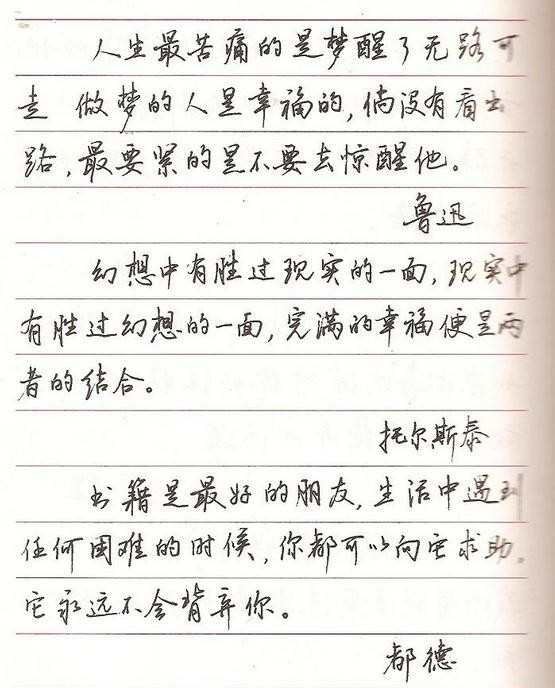 人生最苦痛的是梦醒了无路可
走 做梦的人是幸福的,倘没有看出
路,最要紧的是不要去惊醒他。
鲁迅
幻想中有胜过现实的一面,现实中
有胜过幻想的一面,完满的幸福便是两
者的结合。
托尔斯泰
书籍是最好的朋友,生活中遇到
任何困难的时候,你都可以向它求助,
它永远不会背弃你。
都德